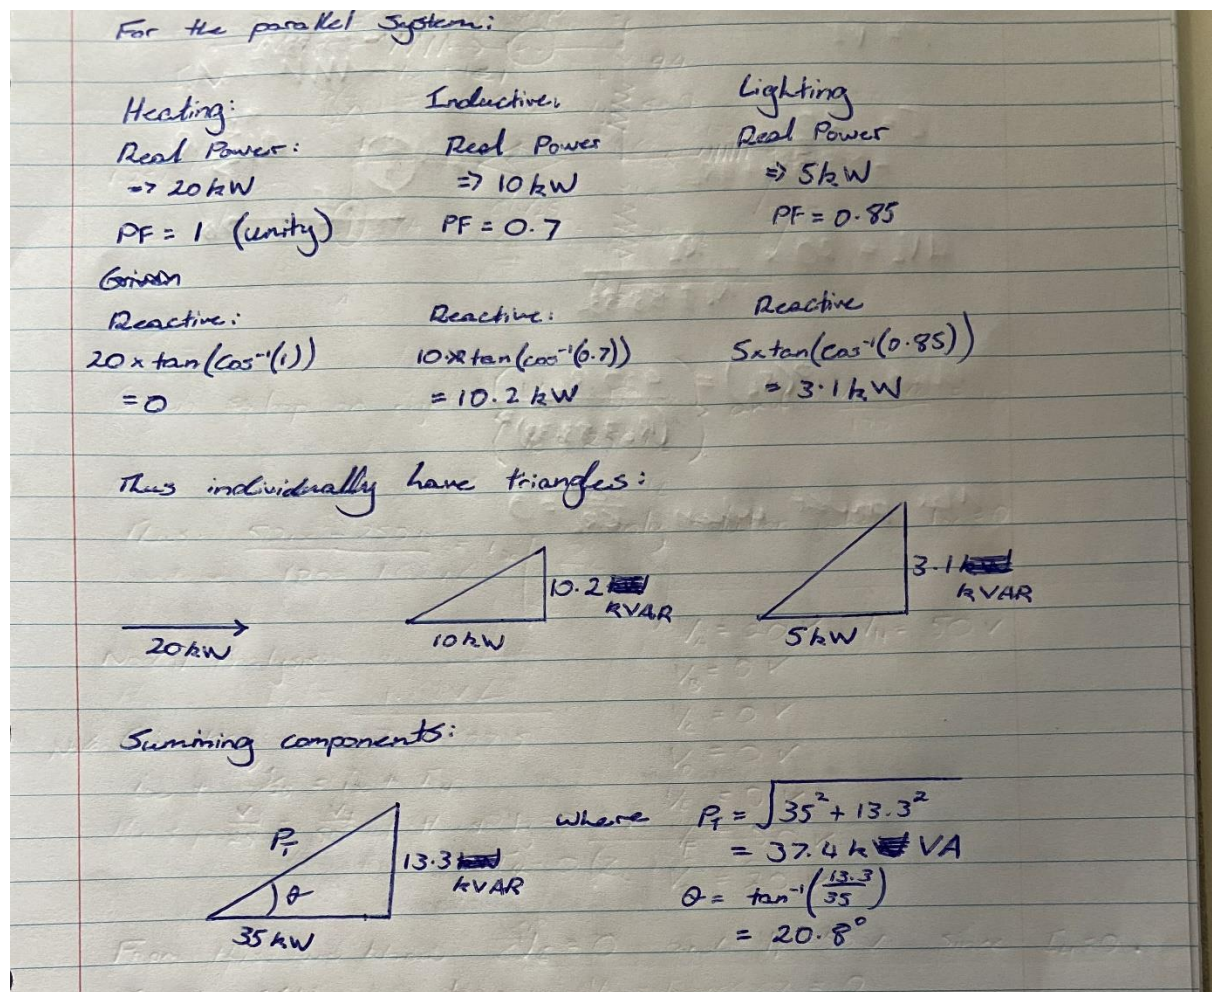 For the parallel System:
Heating:
Real Power:
=> 20kW
PF = 1 (unity)
Reactive:
20 x tan(cos⁻¹(1))
= 0
Inductive:
Real Power
=> 10kW
PF = 0.7
Reactive:
10 x tan(cos⁻¹(0.7))
= 10.2 kW
Lighting
Real Power
=> 5kW
PF = 0.85
Reactive
5xtan(cos⁻¹(0.85))
= 3.1kW
Thus individually have triangles:
20kW
10.2
kVAR
10kW
3.1k
kVAR
5kW
Summing components:
P_T
θ
13.3
kVAR
35kW
where P_T = √35² + 13.3²
= 37.4 k VA
θ = tan⁻¹(13.3/35)
= 20.8°